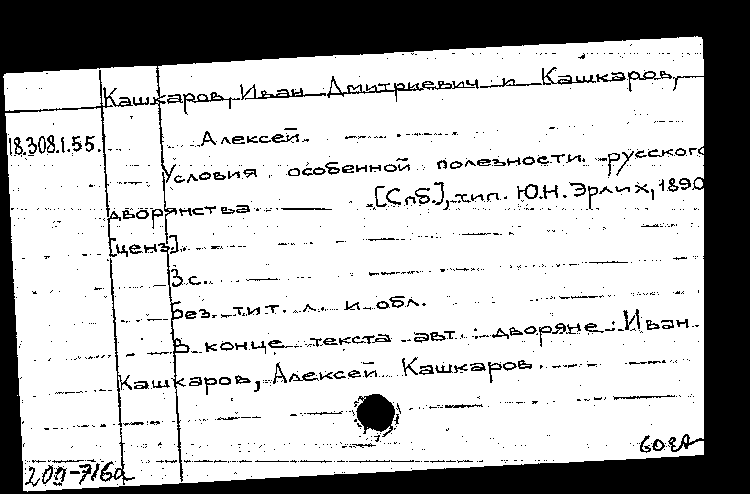 Кашкаров, Иван Дмитриевич и Кашкаров,
18.308.1.55. Алексей.
Условия особенной полезности русского
дворянства. — [Спб.], тип. Ю.Н. Эрлих, 1890
[ценз.].
3 с.
Без. тит. л. и обл.
В конце текста авт.: дворяне: Иван
Кашкаров, Алексей Кашкаров.
200-716а